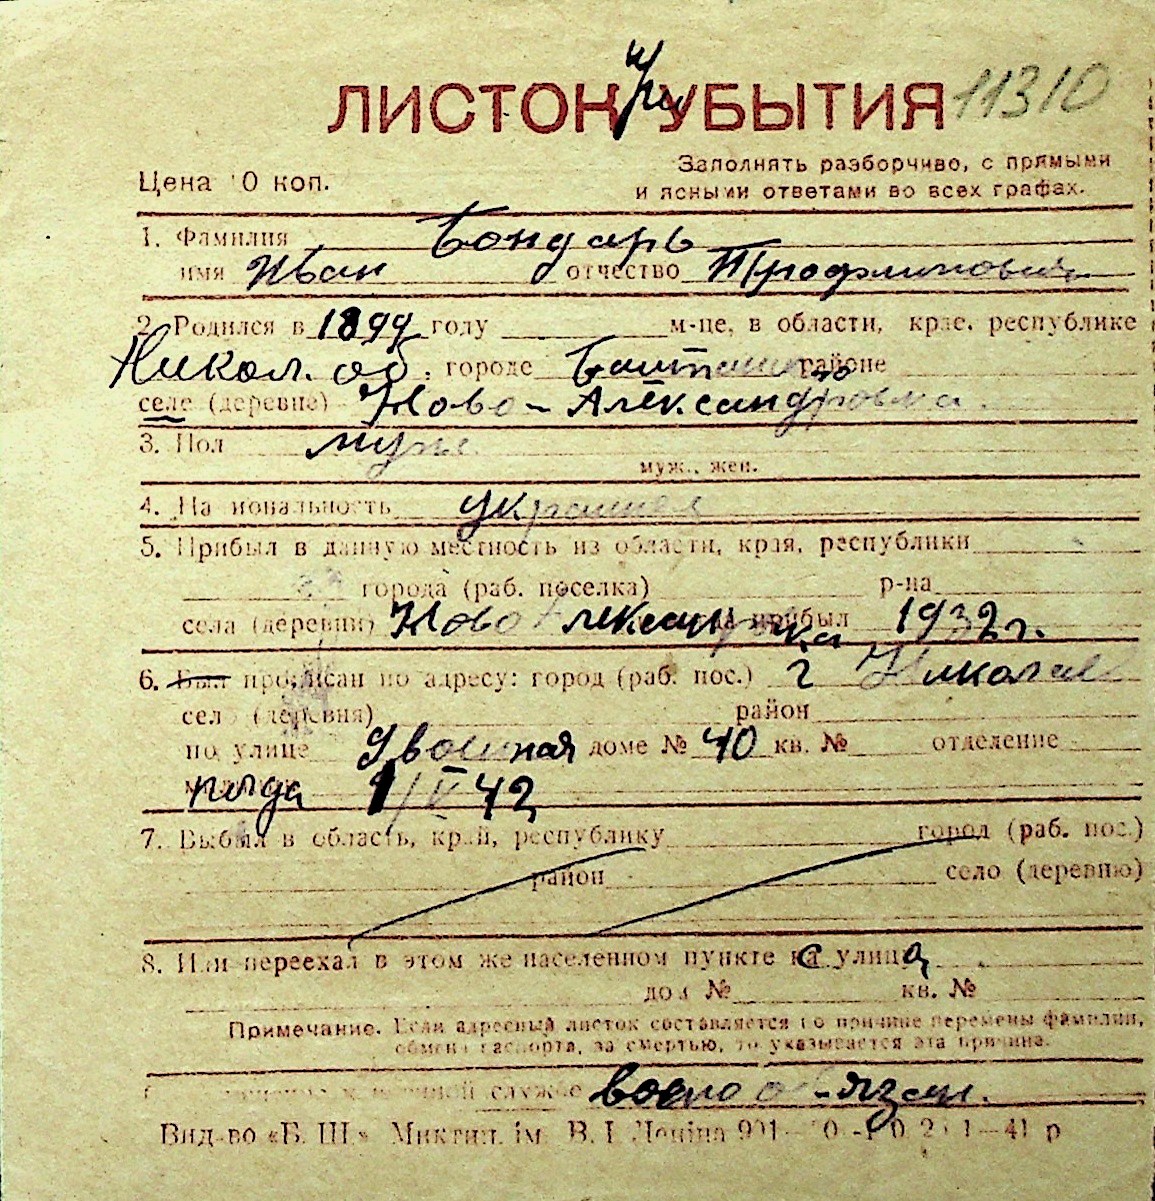 ЛИСТОК УБЫТИЯ 11310
При
Цена 10 коп.
Заполнять разборчиво, с прямыми
и ясными ответами во всех графах.
1. Фамилия Бондарь
имя Иван отчество Трофимович
2. Родился в 1899 году м-це, в области, крае, республике
Никол. об. городе Баштанско районе
селе (деревне) Ново-Александровка
3. Пол муж.
муж., жен.
4. Национальность украинец
5. Прибыл в данную местность из области, края, республики
города (раб. поселка) р-на
села (деревни) Ново Александровка прибыл 1932 г.
6. Был прописан по адресу: город (раб. пос.) г Николаев
село (деревня) район
по улице доме № 40 кв. № отделение
когда 1/V 42
7. Выбыл в область, край, республику город (раб. пос.)
район село (деревню)
8. Или переехал в этом же населенном пункте с улица
дом № кв. №
Примечание. Если адресный листок составляется по причине перемены фамилии,
обмена паспорта, за смертью, то указывается эта причина.
службе военнообязан.
Вид-во «Б. Ш.» Микол. ім. В. І. Леніна 1—41 р